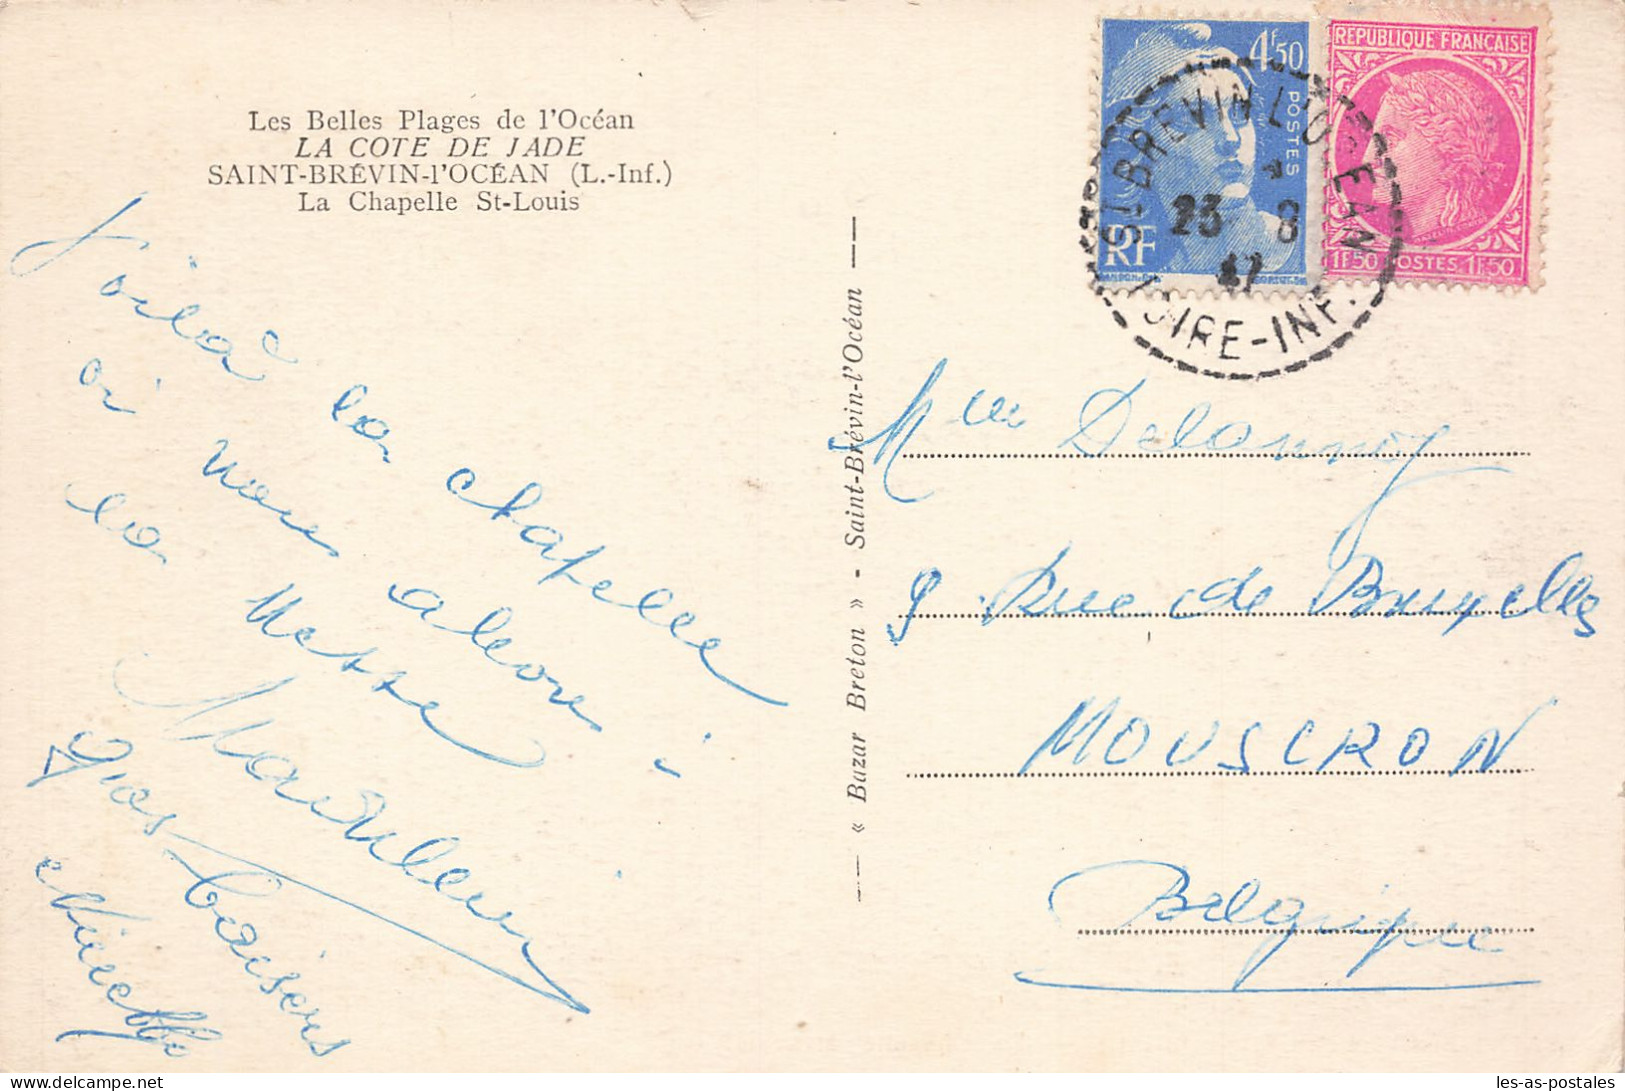 Les Belles Plages de l'Océan
LA COTE DE JADE
SAINT-BRÉVIN-l'OCÉAN (L.-Inf.)
La Chapelle St-Louis
Voilà la chapelle
où nous allons à
la Messe
gros baisers
« Bazar Breton » - Saint-Brévin-l'Océan
4F50
POSTES
RF
REPUBLIQUE FRANÇAISE
1F50 POSTES 1F50
ST BREVIN L'OCEAN
23 8
47
LOIRE-INF.
Mme Delannoy
9 Rue de Bruxelles
MOUSCRON
Belgique
les-as-postales